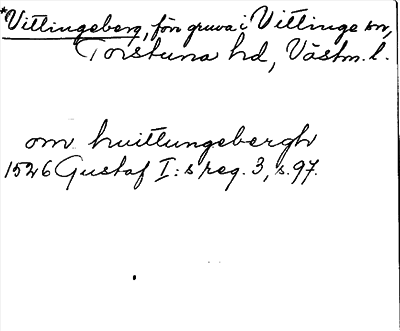 *Vittingeberg, förr gruva i Vittinge sn,
Torstuna hd, Västm. l.
om hwittungebergh
1526 Gustaf I:s reg. 3, s. 97.